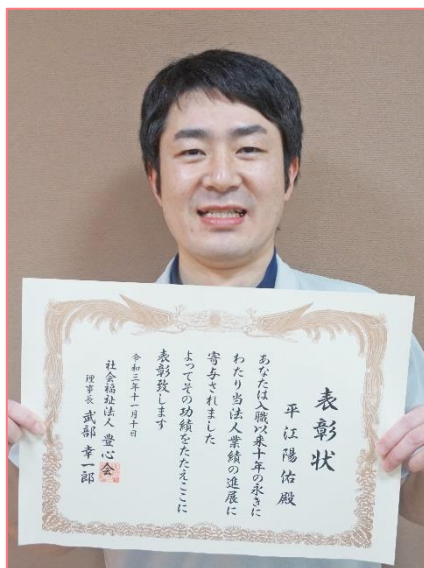 表彰状
平江陽佑殿
あなたは入職以来十年の永きに
わたり当法人業績の進展に
寄与されました
よってその功績をたたえここに
表彰致します
令和三年十一月十日
社会福祉法人 豊心会
理事長 武部幸一郎